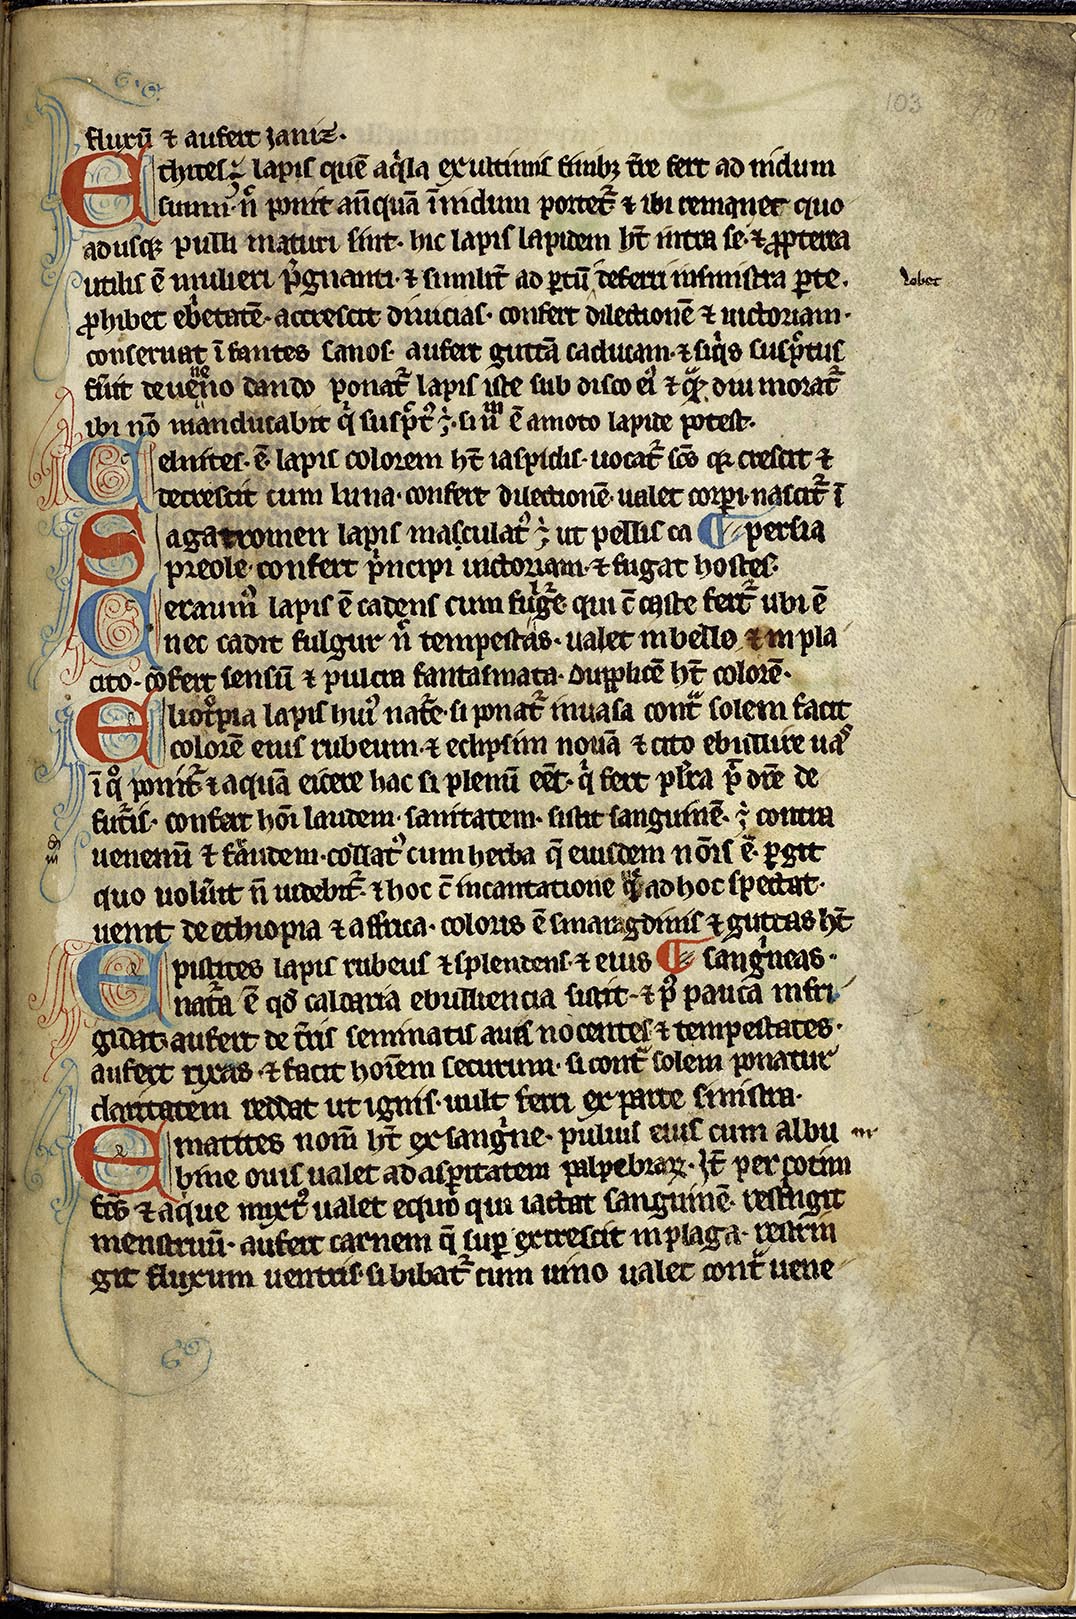 103
fluxū ⁊ aufert zaniē.
Ethites ÷ lapis quē aq̇la ex ultimis finibꝫ t̄re fert ad nidum
suum. n̄ ponit an̄quā ī nidum portet᷑ ⁊ ibi remanet quo
adusqꝫ pulli maturi sint. hic lapis lapidem ht̄ intra se. ⁊ ꝓpterea
utilis ē mulieri p̄gnanti. ⁊ similit᷑ ad ꝑtū deferri in sinistra ꝑte.
debet
ꝓhibet eb̓etatē. accrescit diuicias. confert dilectionē ⁊ uictoriam.
conseruat īfantes sanos. aufert guttā caducam. ⁊ siq̇s susp̄tus
fūit de ueneno dando ponat᷑ lapis iste sub disco ei᷒ ⁊ diu morat᷑
ibi nō manducabit q̇ susp̄t᷒ ÷. si ū ē amoto lapide potest.
Celnites. ē. lapis colorem ht̄ iaspidis. uocat᷑ scs̄ qꝛ crescit ⁊
decrescit cum luna. confert dilectionē. ualet corꝑi. nascit᷑ ī
Sagatromen lapis masculat᷒ ÷ ut pellis ca ¶ persia
preole. confert p̄ncipi uictoriam. ⁊ fugat hostes.
Ceraum᷒ lapis ē cadens cum fulg᷑e. qui c̄ caste fert᷑ ubi ē
nec cadit fulgur n̄ tempestas. ualet in bello ⁊ in pla
cito. ꝯfert sensū ⁊ pulcra fantasmata. dupplicē ht̄ colorē.
Eliotᷓpia lapis hui᷒ nat᷑e. si ponat᷑ in uasa contᷓ solem facit
colorē eius rubeum. ⁊ eclipsim nouā ⁊ cito ebullire uas
ī qͦ ponit᷑ ⁊ aquā eicere hac si plenū eēt. q̇ fert pet᷑ra p̄dr̄e de
fut᷑is. confert hōi laudem. sanitatem. sistit sanguinē. ÷ contra
uenenū ⁊ fᷓudem. collat᷒ cum herba q̄ eiusdem nōis ē. ꝑgit
quo uolūit n̄ uidebit᷑. ⁊ hoc c̄ incantatione q̄ ad hoc spectat.
uenit de ethiopia ⁊ affrica. coloris ē smaragdinis ⁊ guttas ht̄
Epistites lapis rubeus ⁊ splendens. ⁊ eius ¶ sang̓neas.
natᷓa ē qd̄ caldaria ebulliencia sistit. ⁊ p᷒ pauca infri
gidat. aufert de t̄ris seminatis aues nocentes ⁊ tempestates.
aufert rixas. ⁊ facit hoīem securum. si contᷓ solem ponatur
claritatem reddat ut ignis. uult ferri ex parte sinistra.
Ematites nom̄ ht̄ ex sang̓ne. puluis eius cum albu
bine ouis ualet ad asꝑitatem palpebraꝝ. ht̄ per potim
⁊ aque mixt᷒ ualet equo qui iactat sanguinē. restīgit
menstruū. aufert carnem q̄ suꝑ excrescit in plaga. restrin
git fluxum uentris. si bibat᷑ cum uino ualet contᷓ uene